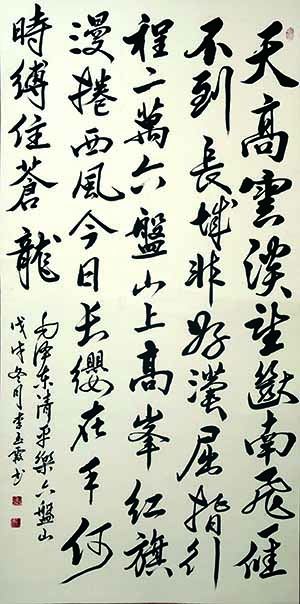 天高雲淡望斷南飛雁
不到長城非好漢屈指行
程二萬六盤山上高峯紅旗
漫捲西風今日长纓在手何
時縛住蒼龍
毛泽东清平樂六盤山
戊戌冬月李书